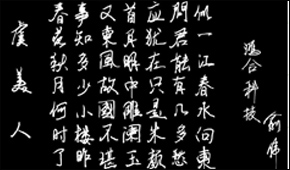 虞美人
春花秋月何時了
事知多少小樓昨
又東風故國不堪
首月明中雕闌玉
应犹在只是朱颜
問君能有几多愁
似一江春水向東
鸿合科技